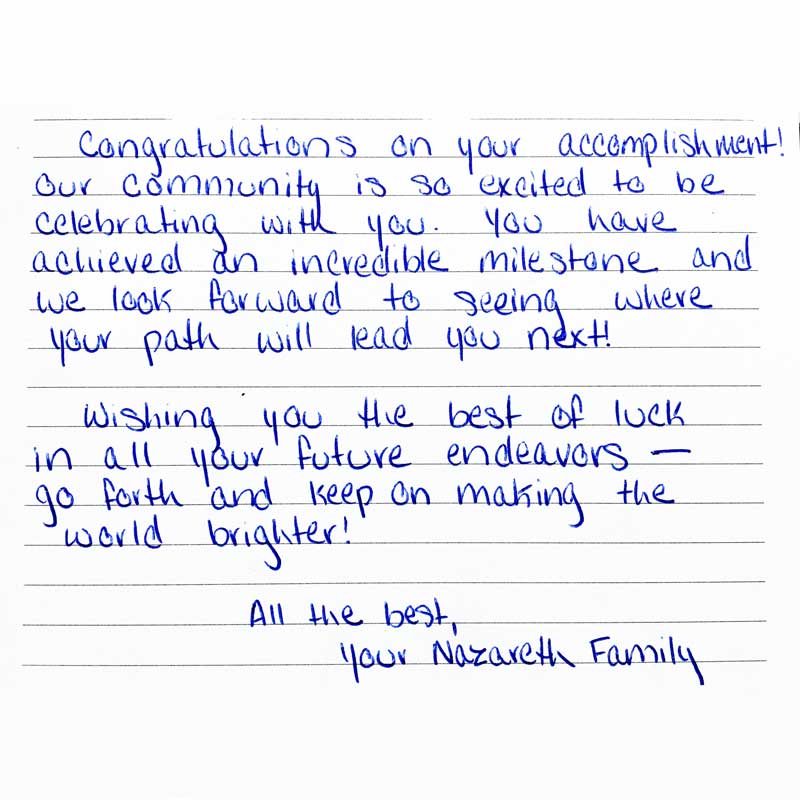 Congratulations on your accomplishment!
Our community is so excited to be
celebrating with you. You have
achieved an incredible milestone and
we look forward to seeing where
your path will lead you next!
Wishing you the best of luck
in all your future endeavors —
go forth and keep on making the
world brighter!
All the best,
Your Nazareth Family